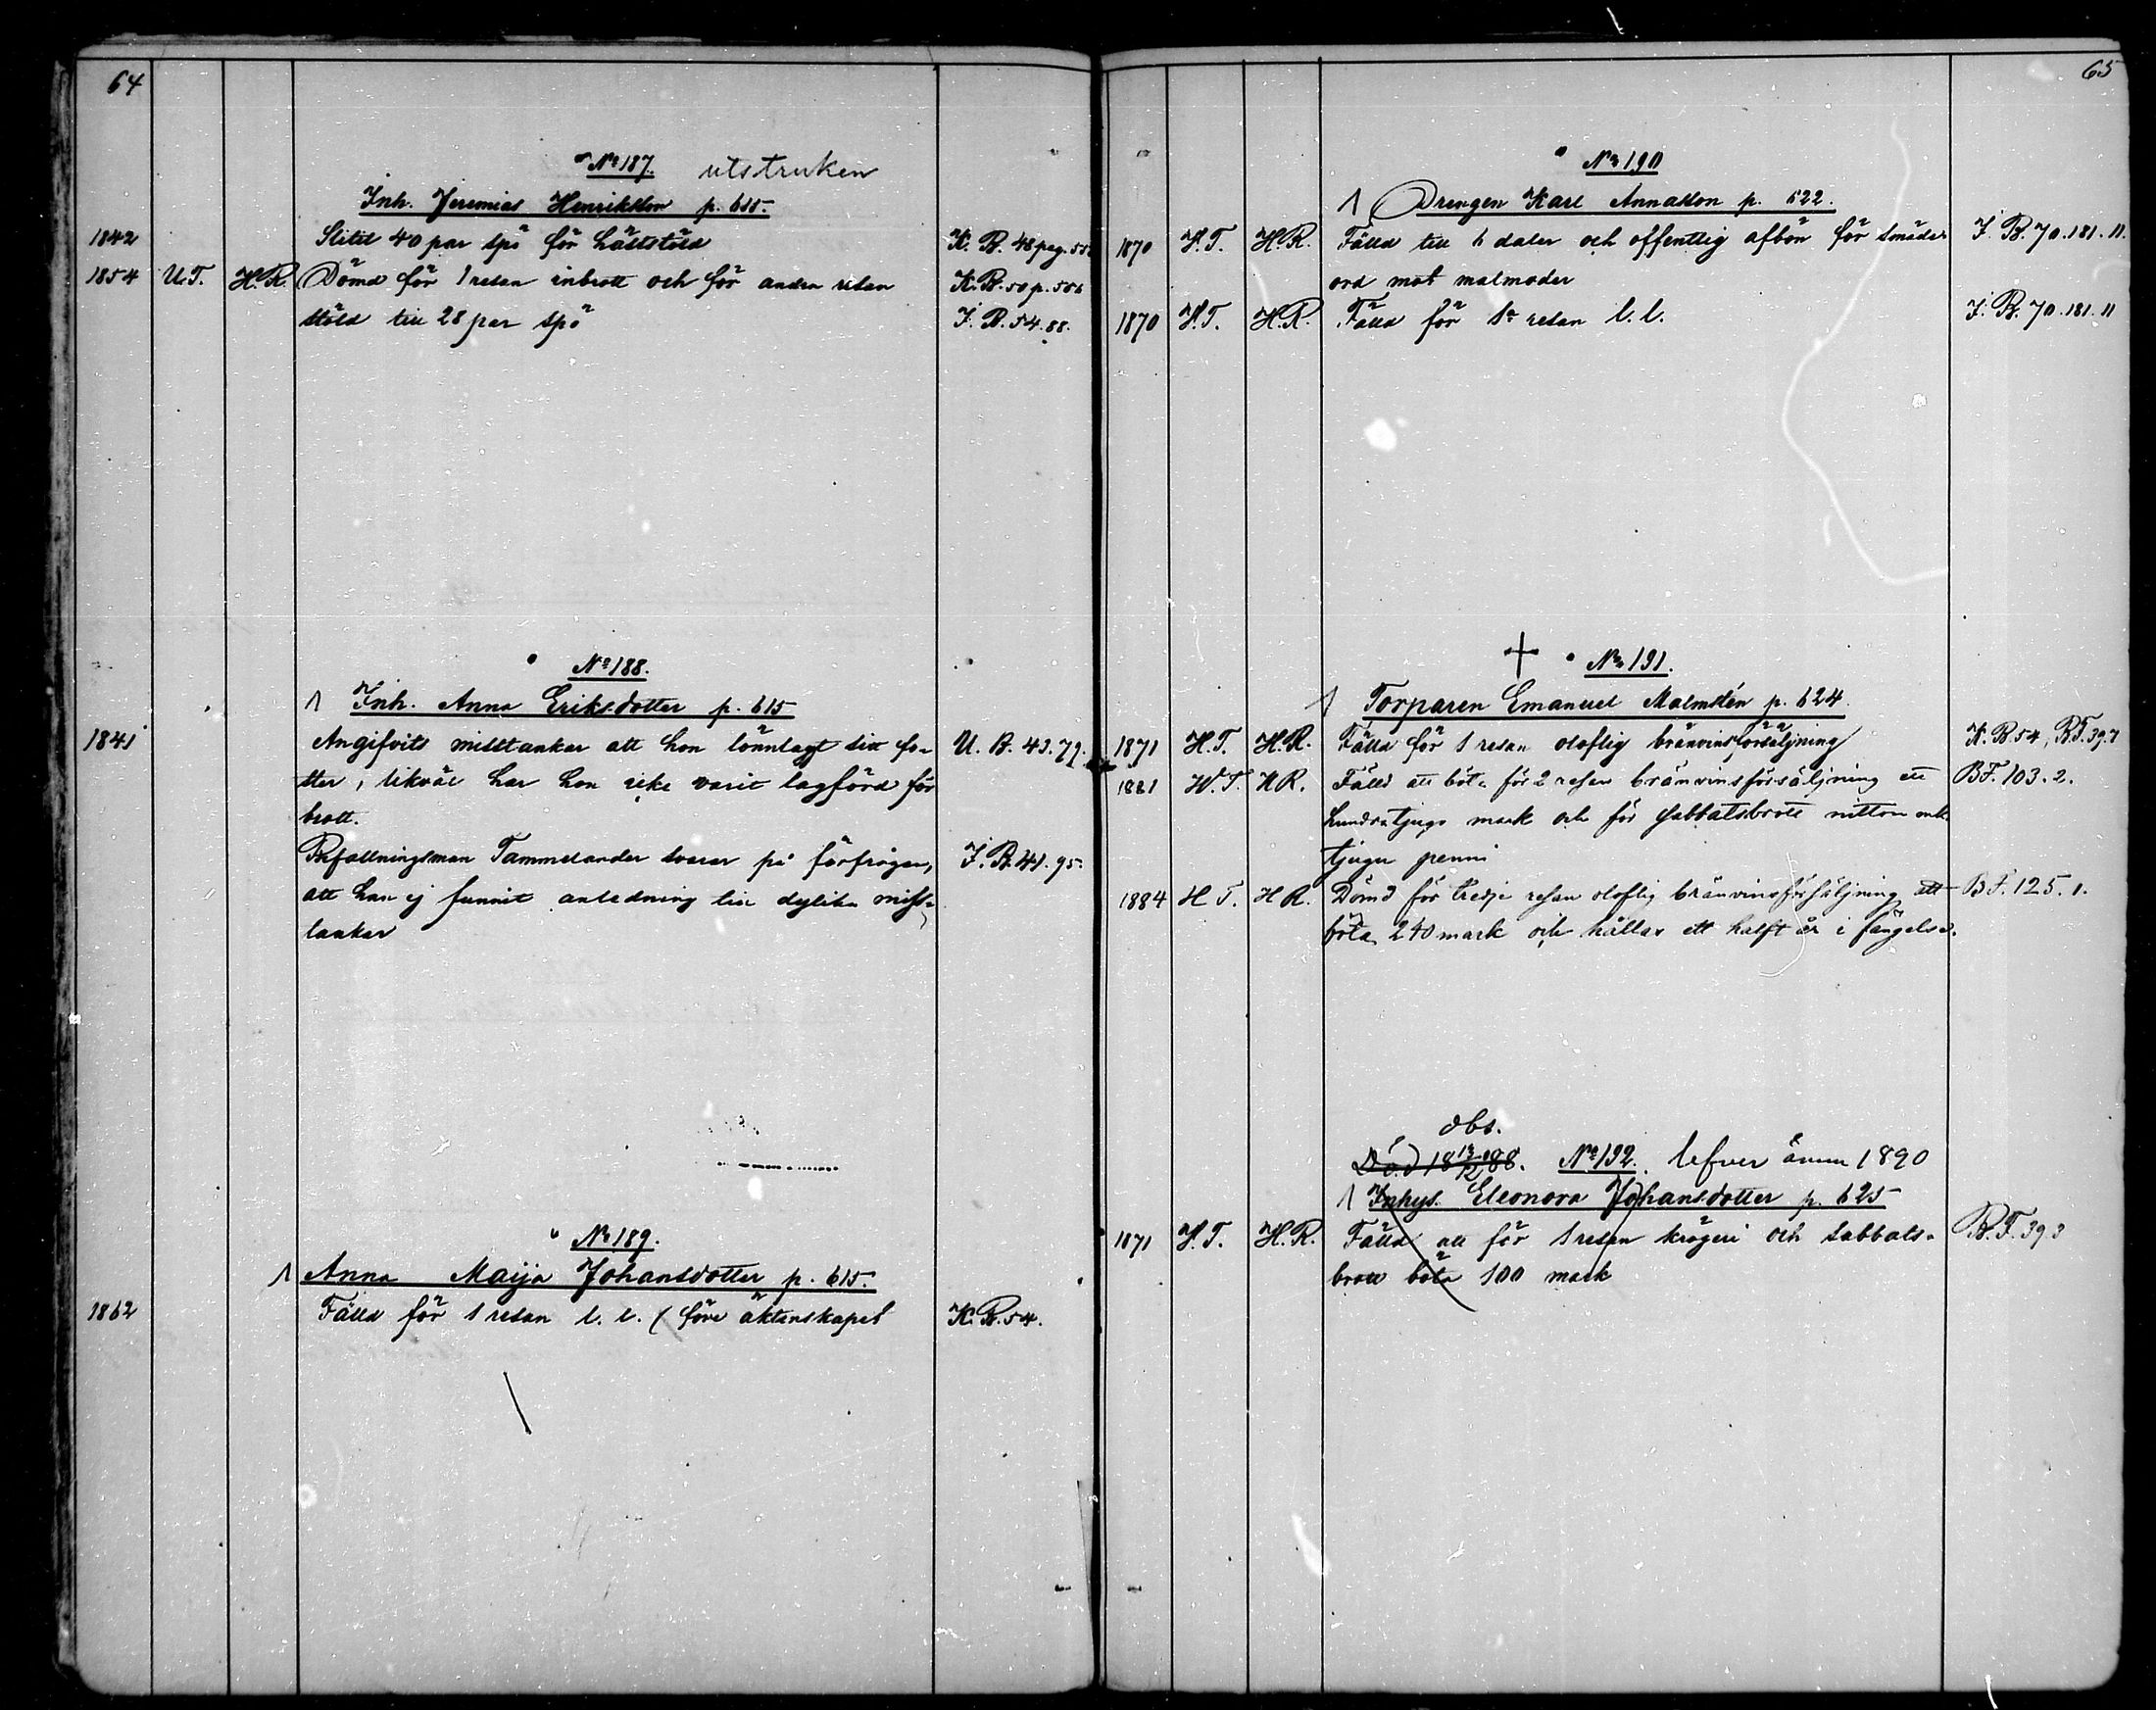 64
No 187. utstruken
Inh. Jeremias Henriksson p. 615.
1842 Slitit 40 par spö för häststöld K. B. 48 pag. 55
1854 U.T. H.R. Dömd för 1 resan inbrott och för andra resan K. B. 50 p. 556
stöld till 28 par spö I. B. 54. 88.
No 188.
1 Inh. Anna Eriksdotter p. 615
1841 Angifvits misstankar att hon lönnlagt sitt fo- U. B. 43. 79.
ster, likväl har hon icke varit lagförd för
brott.
Befallningsman Tammelander svarar på förfrågan, I. B. 41. 95.
att han ej funnit anledning till dylika miss-
tankar
No 189.
1 Anna Maija Johansdotter p. 615.
1862 Fälld för 1 resan l. l. (före äktenskapet K. B. 54.
65
No 190
1 Drengen Karl Annasson p. 622.
1870 V.T. H.R. Fälld till 6 daler och offentlig afbön för smäde- I. B. 70. 181. 11.
ord mot matmoder
1870 V.T. H.R. Fälld för 1a resan l. l. I. B. 70. 181. 11
+ No 191.
1 Torparen Emanuel Malmstén p. 624.
1871 H.T. H.R. Fälld för 1 resan oloflig bränvinsförsäljning K. B. 54, B.F. 39. 7
1881 W.T. H R. Fälld att böta för 2 resan bränvinsförsäljning ett B F. 103. 2.
hundratjugo mark och för sabbatsbrott nitton mk
tjugu penni
1884 H T. H R. Dömd för tredje resan oloflig bränvinsförsäljning att B F. 125. 1.
böta 240 mark och hållas ett halft år i fängelse.
obs.
Död 18 13/12 88. No 192. lefver ännu 1890
1 Inhys. Eleonora Johansdotter p. 625
1871 V.T. H.R. Fälld att för 1 resan krögeri och sabbats- B. F. 39. 3
brott böta 100 mark